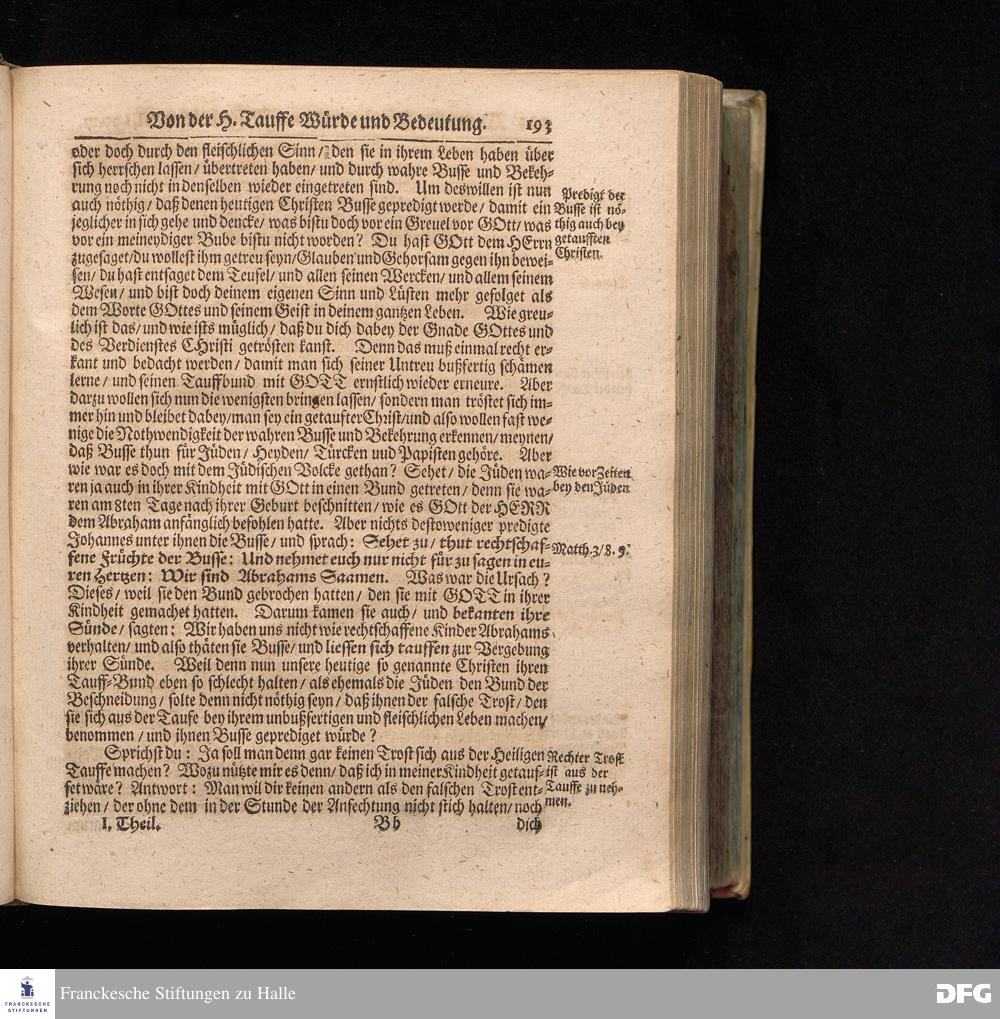 Von der H. Tauffe Würde und Bedeutung. 193
oder doch durch den fleischlichen Sinn/ den sie in ihrem Leben haben über
sich herrschen lassen/ übertreten haben/ und durch wahre Busse und Bekeh-
rung noch nicht in denselben wieder eingetreten sind. Um deswillen ist nun
auch nöthig/ daß denen heutigen Christen Busse gepredigt werde/ damit ein
jeglicher in sich gehe und dencke/ was bistu doch vor ein Greuel vor GOtt/ was
vor ein meineydiger Bube bistu nicht worden? Du hast GOtt dem HErrn
zugesaget/ du wollest ihm getreu seyn/ Glauben und Gehorsam gegen ihn bewei-
sen/ du hast entsaget dem Teufel/ und allen seinen Wercken/ und allem seinem
Wesen/ und bist doch deinem eigenen Sinn und Lüsten mehr gefolget als
dem Worte GOttes und seinem Geist in deinem gantzen Leben. Wie greu-
lich ist das/ und wie ists müglich/ daß du dich dabey der Gnade GOttes und
des Verdienstes CHristi getrösten kanst. Denn das muß einmal recht er-
kant und bedacht werden/ damit man sich seiner Untreu bußfertig schämen
lerne/ und seinen Tauffbund mit GOTT ernstlich wieder erneure. Aber
darzu wollen sich nun die wenigsten bringen lassen/ sondern man tröstet sich im-
mer hin und bleibet dabey/ man sey ein getaufter Christ/ und also wollen fast we-
nige die Nothwendigkeit der wahren Busse und Bekehrung erkennen/ meynen/
daß Busse thun für Jüden/ Heyden/ Türcken und Papisten gehöre. Aber
wie war es doch mit dem Jüdischen Volcke gethan? Sehet/ die Jüden wa-
ren ja auch in ihrer Kindheit mit GOtt in einen Bund getreten/ denn sie wa-
ren am 8ten Tage nach ihrer Geburt beschnitten/ wie es GOtt der HERR
dem Abraham anfänglich befohlen hatte. Aber nichts destoweniger predigte
Johannes unter ihnen die Busse/ und sprach: Sehet zu/ thut rechtschaf-
fene Früchte der Busse: Und nehmet euch nur nicht für zu sagen in eu-
ren Hertzen: Wir sind Abrahams Saamen. Was war die Ursach?
Dieses/ weil sie den Bund gebrochen hatten/ den sie mit GOTT in ihrer
Kindheit gemachet hatten. Darum kamen sie auch/ und bekanten ihre
Sünde/ sagten: Wir haben uns nicht wie rechtschaffene Kinder Abrahams
verhalten/ und also thäten sie Busse/ und liessen sich tauffen zur Vergebung
ihrer Sünde. Weil denn nun unsere heutige so genannte Christen ihren
Tauff-Bund eben so schlecht halten/ als ehemals die Jüden den Bund der
Beschneidung/ solte denn nicht nöthig seyn/ daß ihnen der falsche Trost/ den
sie sich aus der Taufe bey ihrem unbußfertigen und fleischlichen Leben machen/
benommen/ und ihnen Busse geprediget würde?
Sprichst du: Ja soll man denn gar keinen Trost sich aus der Heiligen
Tauffe machen? Wozu nützte mir es denn/ daß ich in meiner Kindheit getauf-
fet wäre? Antwort: Man wil dir keinen andern als den falschen Trost ent-
ziehen/ der ohne dem in der Stunde der Anfechtung nicht stich halten/ noch
I. Theil. Bb dich
Predigt der
Busse ist nö-
thig auch bey
getaufften
Christen.
Wie vor Zeiten
bey den Jüden
Matth. 3/8. 9.
Rechter Trost
ist aus der
Tauffe zu neh-
men.
FRANCKESCHE
STIFTUNGEN
Franckesche Stiftungen zu Halle
DFG